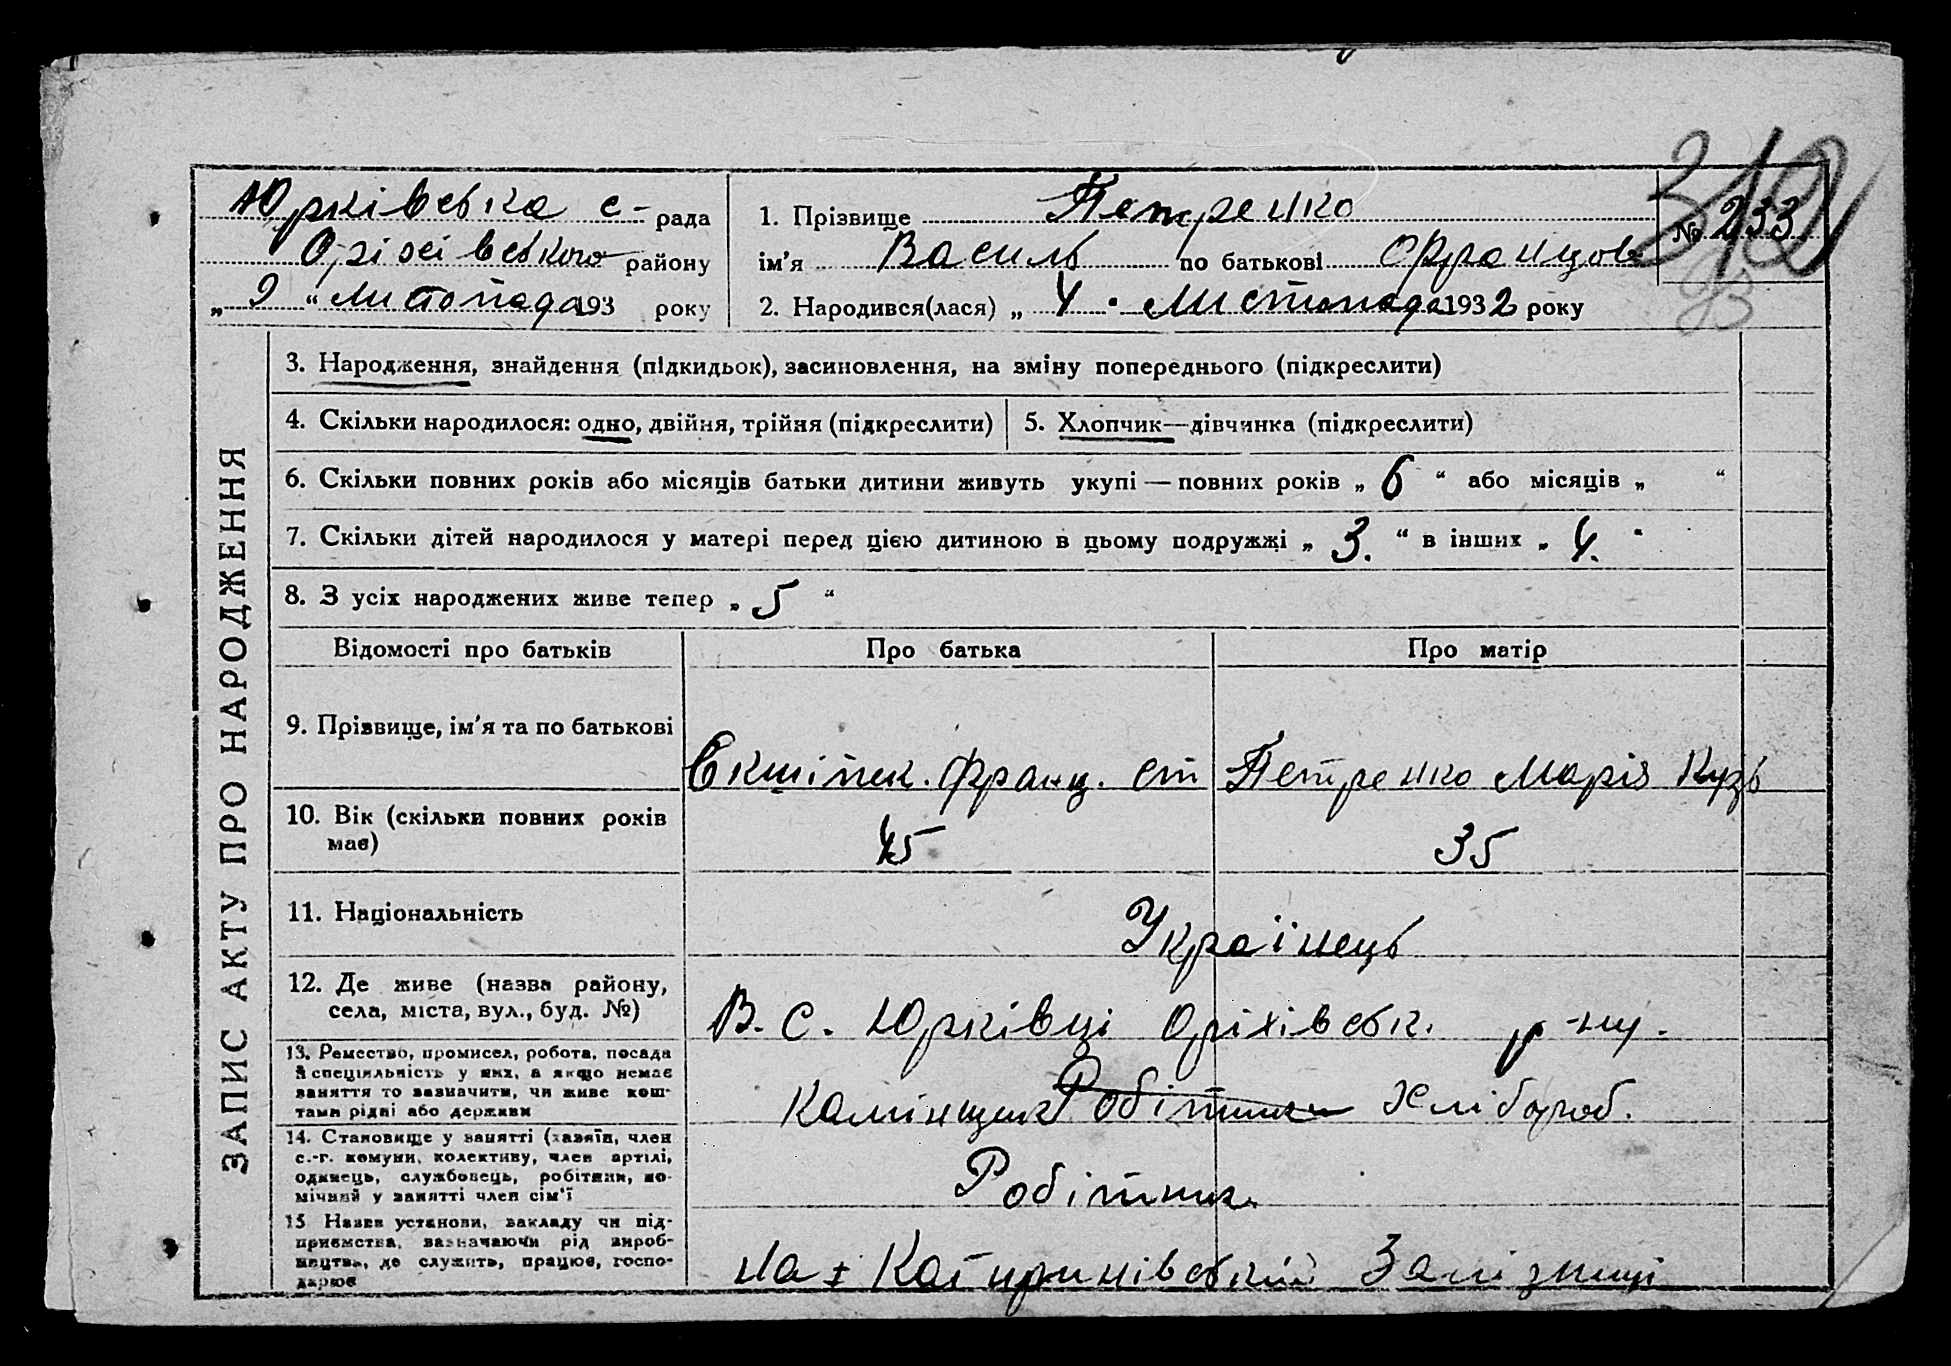 Юрківська с- рада
Орісівського району
„ 9 “ Листопада 193 року
1. Прізвище Петренко
ім’я Василь по батькові Францов
№ 233
2. Народився(лася) „ 4 . Листопада 1932 року
ЗАПИС АКТУ ПРО НАРОДЖЕННЯ
3. Народження, знайдення (підкидьок), засиновлення, на зміну попереднього (підкреслити)
4. Скільки народилося: одно, двійня, трійня (підкреслити)
5. Хлопчик—дівчинка (підкреслити)
6. Скільки повних років або місяців батьки дитини живуть укупі — повних років „ 6 “ або місяців „ “
7. Скільки дітей народилося у матері перед цією дитиною в цьому подружжі „ 3. “ в інших „ 4. “
8. З усіх народжених живе тепер „ 5 “
Відомості про батьків
Про батька
Про матір
9. Прізвище, ім’я та по батькові
Франц. ст
Петренко Марія Кузь
10. Вік (скільки повних років
має)
45
35
11. Національність
Українець
12. Де живе (назва району,
села, міста, вул., буд. №)
В. С. Юрківці Оріхівськ. р-ну.
13. Ремество, промисел, робота, посада
й спеціяльність у них, а якщо немає
заняття то зазначити, чи живе кош-
тами рідні або держави
Камінщик Робітник Хлібороб.
14. Становище у занятті (хазяїн, член
с.-г. комуни, колективу, член артілі,
одинець, службовець, робітник, по-
мічний у занятті член сім’ї
Робітник.
15 Назва установи, закладу чи під-
приємства, зазначаючи рід вироб-
ництва, де служить, працює, госпо-
дарює
на Катиринівській Залізниці